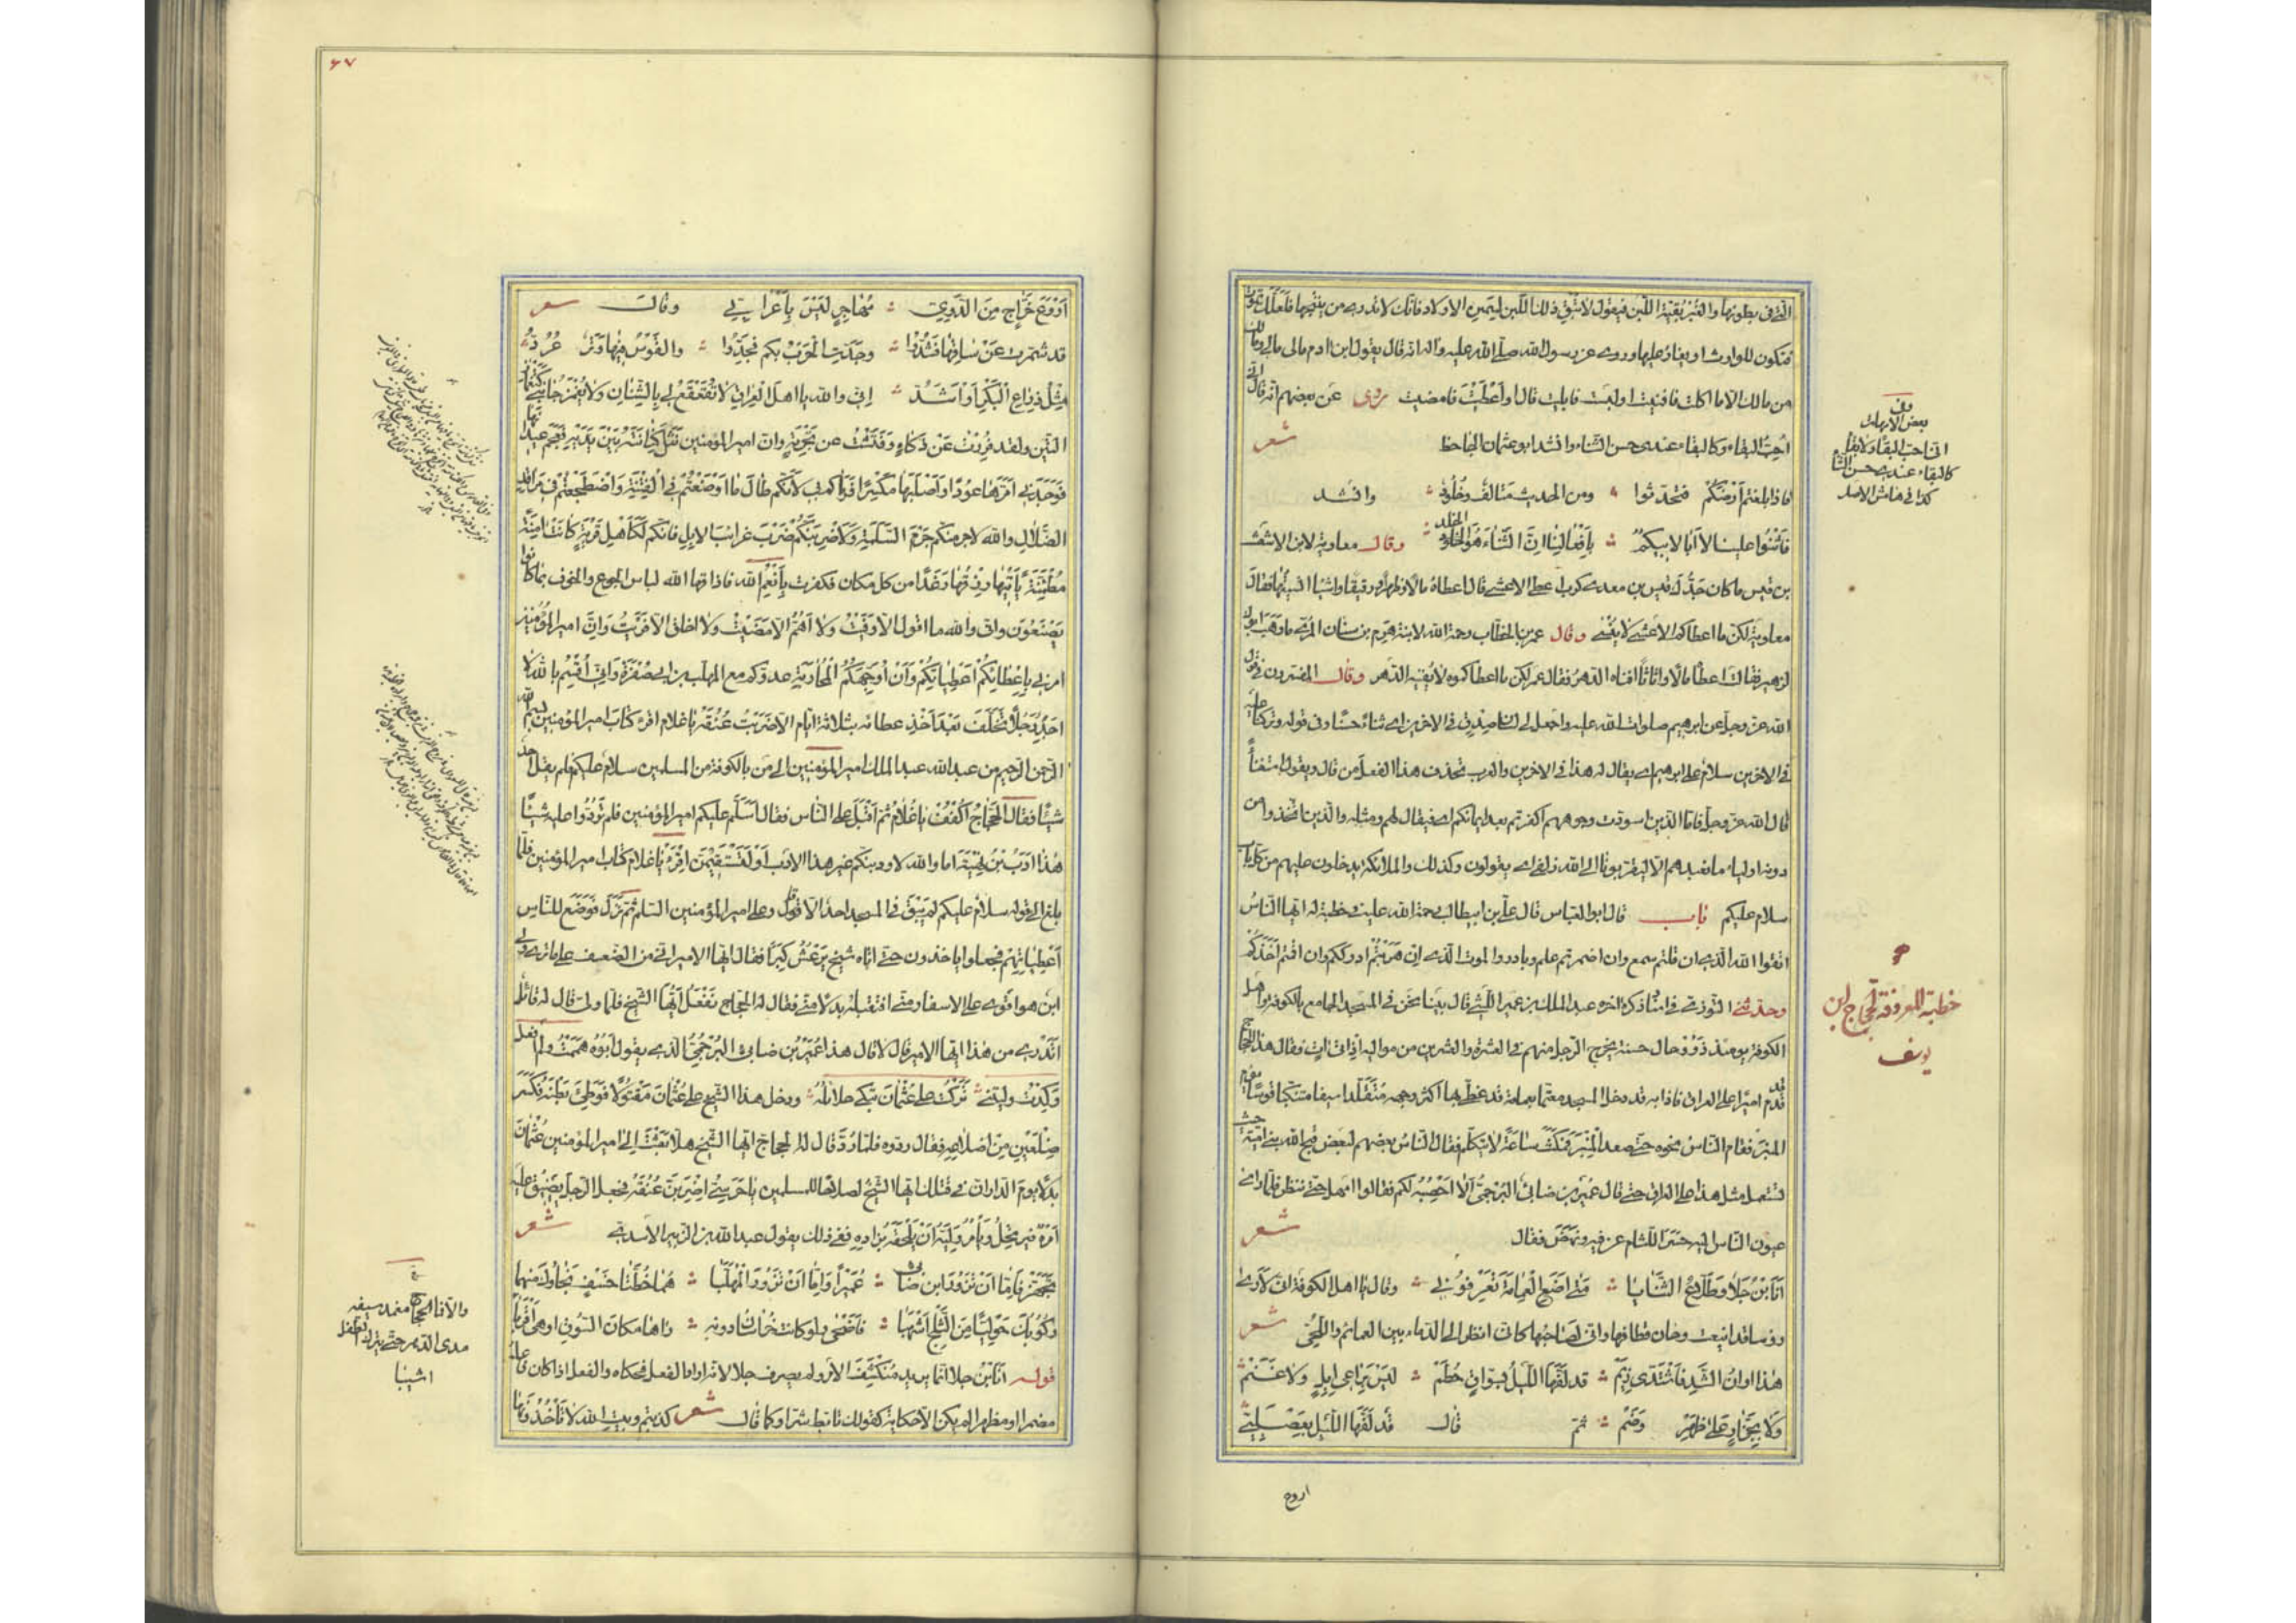 التي في بطونها والغبر بقية اللبن فيقول لا تبق ذلك اللبن ليسمن الاولاد فانك لا تدري من ينتجها فلعلك تموت
فتكون للوارث او يغار عليها وروى عن رسول الله صلى الله عليه واله انه قال يقول ابن ادم مالي مالي ومالك
من مالك الا ما اكلت فافنيت او لبست فابليت او اعطيت فامضيت روى عن بعضهم انه قال اني
احب البقاء وكالبقاء عندي حسن الثناء وانشد ابو عثمان الجاحظ شعر
فاذا بلغتم ارضكم فتحدثوا ومن الحديث متالف وخلود وانشد
فاثنوا علينا لا ابا لابيكم بافعالنا ان الثناء هو الخلد وقال معاوية لابن الاشعث
بن قيس ما كان جدك قيس بن معدي كرب اعطى الاعشى قال اعطاه مالا وظهرا ورقيقا واشياء انسيتها فقال
معاوية لكن ما اعطاكم الاعشى لا ينسى وقال عمر بن الخطاب رحمة الله لابنة هرم بن سنان المري ما وهب ابوك
لزهير فقالت اعطاه مالا واثاثا افناه الدهر فقال عمر لكن ما اعطاكموه لا يفنيه الدهر وقال المفسرون في قول
الله عز وجل عن ابرهيم صلوات الله عليه واجعل لي لسان صدق في الاخرين اي ثناء حسنا وفي قوله وتركنا عليه
في الاخرين سلام على ابرهيم اي يقال له هذا في الاخرين والعرب تحذف هذا الفعل من قال ويقول استغناء
قال الله عز وجل فاما الذين اسودت وجوههم اكفرتم بعد ايمانكم اي فيقال لهم ومثله والذين اتخذوا من
دونه اولياء ما نعبدهم الا ليقربونا الى الله زلفى اي يقولون وكذلك والملائكة يدخلون عليهم من كل باب
سلام عليكم باب قال ابو العباس قال علي بن ابيطالب رحمة الله عليه في خطبة له ايها الناس
اتقوا الله الذي ان قلتم سمع وان اضمرتم علم وبادروا الموت الذي ان هربتم ادرككم وان اقمتم اخذكم
وحدثني التوزي في اسناد ذكره اخره عبد الملك بن عمير الليثي قال بينا نحن في المسجد الجامع بالكوفة واهل
الكوفة يومئذ ذوو حال حسنة يخرج الرجل منهم في العشرة والعشرين من مواليه اذ اتى ات فقال هذا الحجاج
قد قدم اميرا على العراق فاذا به قد دخل المسجد معتما بعمامة قد غطى بها اكثر وجهه متقلدا سيفا متنكبا قوسا يؤم
المنبر فقام الناس نحوه حتى صعد المنبر فمكث ساعة لا يتكلم فقال الناس بعضهم لبعض قبح الله بني امية حيث
تستعمل مثل هذا على العراق حتى قال عمير بن ضابئ البرجمي الا احصبه لكم فقالوا امهل حتى ننظر فلما راى
عيون الناس اليه حسر اللثام عن فيه ونهض فقال شعر
انا ابن جلا وطلاع الثنايا متى اضع العمامة تعرفوني وقال يا اهل الكوفة اني لارى
رؤسا قد اينعت وحان قطافها واني لصاحبها كاني انظر الى الدماء بين العمائم واللحى شعر
هذا اوان الشد فاشتدي زيم قد لفها الليل بسواق حطم ليس براعي ابل ولا غنم
ولا بجزار على ظهر وضم ثم قال قد لفها الليل بعصلبي
اروع
وفي
بعض الامهات
اني احب البقاء ولا بقاء
كالبقاء عندي حسن الثناء
كذا في هامش الاصل
خطبة المعروفة لحجاج ابن
يوسف
٤٧
اروع خراج من الدوي مهاجر ليس باعرابي وقال شعر
قد شمرت عن ساقها فشدوا وجدت الحرب بكم فجدوا والقوس فيها وتر عرد
مثل ذراع البكر او اشد اني والله يا اهل العراق لا يقعقع لي بالشنان ولا يغمز جانبي كتغماز
التين ولقد فررت عن ذكاء وفتشت عن تجربة وان امير المؤمنين نثل كنانته بين يديه فعجم عيدانها
فوجدني امرها عودا واصلبها مكسرا فرماكم بي لانكم طال ما اوضعتم في الفتنة واضطجعتم في مراقد
الضلال والله لاحزمنكم حزم السلمة ولاضربنكم ضرب غرائب الابل فانكم لكاهل قرية كانت امنة
مطمئنة ياتيها رزقها رغدا من كل مكان فكفرت بانعم الله فاذاقها الله لباس الجوع والخوف بما كانوا
يصنعون واني والله ما اقول الا وفيت ولا اهم الا امضيت ولا اخلق الا فريت وان امير المؤمنين
امرني باعطائكم اعطياتكم وان اوجهكم لمحاربة عدوكم مع المهلب بن ابي صفرة واني اقسم بالله لا
اجد رجلا تخلف بعد اخذ عطائه بثلاثة ايام الا ضربت عنقه يا غلام اقرء كتاب امير المؤمنين بسم الله
الرحمن الرحيم من عبد الله عبد الملك امير المؤمنين الى من بالكوفة من المسلمين سلام عليكم فلم يقل احد
شيئا فقال الحجاج اكفف يا غلام ثم اقبل على الناس فقال اسلم عليكم امير المؤمنين فلم تردوا عليه شيئا
هذا ادب بن نهية اما والله لاودبنكم غير هذا الادب او لتستقيمن اقرء يا غلام كتاب امير المؤمنين فلما
بلغ الى قوله سلام عليكم لم يبق في المسجد احد الا قال وعلى امير المؤمنين السلم ثم نزل فوضع للناس
اعطياتهم فجعلوا ياخذون حتى اتاه شيخ يرعش كبرا فقال ايها الامير اني من الضعف على ما ترى ولي
ابن هو اقوى على الاسفار مني افتقبله بدلا مني فقال له الحجاج نفعل ايها الشيخ فلما ولى قال له قائل
اتدري من هذا ايها الامير قال لا قال هذا عمير بن ضابئ البرجمي الذي يقول ابوه هممت ولم افعل
وكدت وليتني تركت على عثمان تبكي حلائله ودخل هذا الشيخ على عثمان مقتولا فوطئ بطنه فكسر
ضلعين من اضلاعه فقال ردوه فلما رد قال له الحجاج ايها الشيخ هلا بعثت الى امير المؤمنين عثمان
بدلا يوم الدار ان في قتلك ايها الشيخ لصلاحا للمسلمين يا حرسي اضربن عنقه فجعل الرجل يضيق عليه
امره فيرتحل ويامر وليه ان يلحقه بزاده ففي ذلك يقول عبد الله بن الزبير الاسدي شعر
تجهز فاما ان تزور ابن ضابئ عميرا واما ان تزور المهلبا هما خطتا خسف نجاؤك منهما
ركوبك حوليا من الثلج اشهبا فاضحى ولو كانت خراسان دونه راها مكان السوق او هي اقربا
قوله انا ابن جلا انما يريد منكشف الامر ولم يصرف جلا لانه اراد الفعل فحكاه والفعل اذا كان فاعله
مضمرا او مظهرا لم يكن الا حكاية كقولك تابط شرا وكما قال شعر كذبتم وبيت الله لا تاخذونها
والا فالحجاج مغمد سيفه
مدى الدهر حتى يترك الطفل
اشيبا